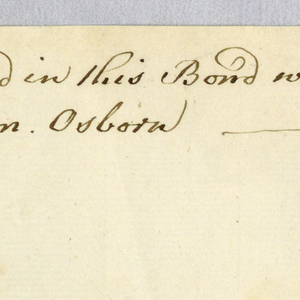 d in this Bond w
n. Osborn